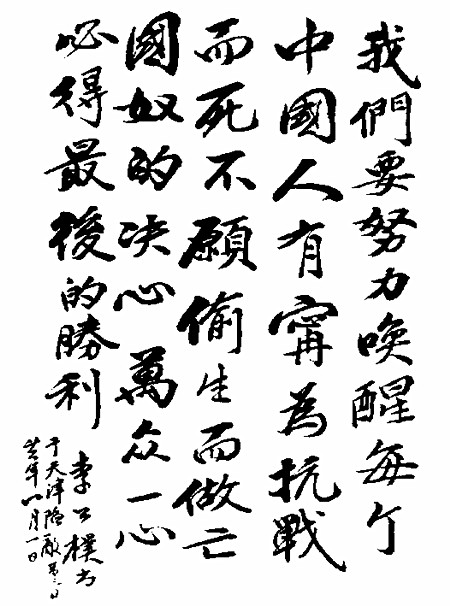 我們要努力喚醒每个
中國人有寗為抗戰
而死不願偷生而做亡
國奴的决心萬众一心
必得最後的勝利
李公樸书
于天津陷敵第三日
廿六年八月一日